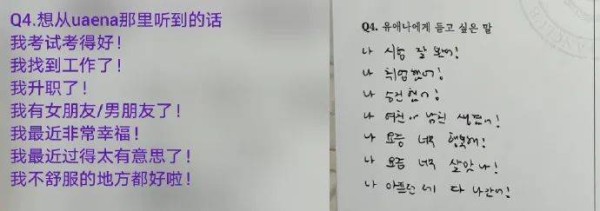 Q4.想从uaena那里听到的话
我考试考得好！
我找到工作了！
我升职了！
我有女朋友/男朋友了！
我最近非常幸福！
我最近过得太有意思了！
我不舒服的地方都好啦！
Q4. 유애나에게 듣고 싶은 말
나 시험 잘 봤어!
나 취업했어!
나 승진했어!
나 여친 / 남친 생겼어!
나 요즘 너무 행복해!
나 요즘 너무 살맛나!
나 아프던 데 다 나았어!